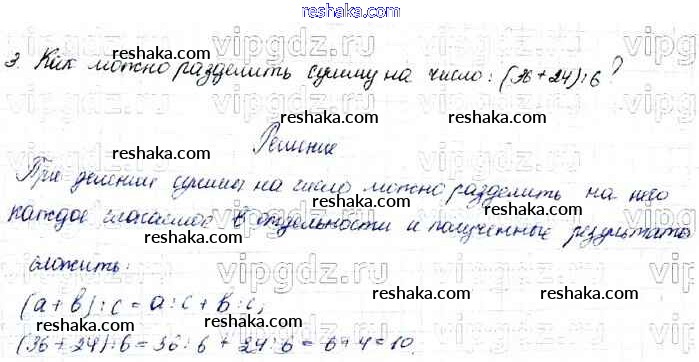 3. Как можно разделить сумму на число: (36+24):6?
Решение
При делении суммы на число можно разделить на него
каждое слагаемое в отдельности и полученные результаты
сложить:
(a+b):c=a:c+b:c,
(36+24):6=36:6+24:6=6+4=10.
reshaka.com
vipgdz.ru